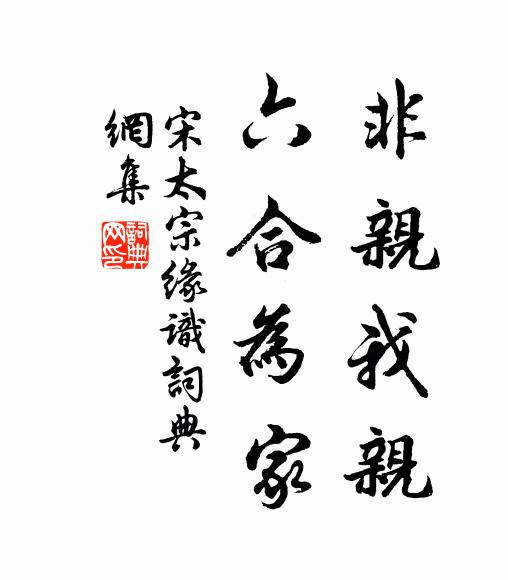 非親我親
六合為家
宋太宗緣識詞典
網集
詞典
網印